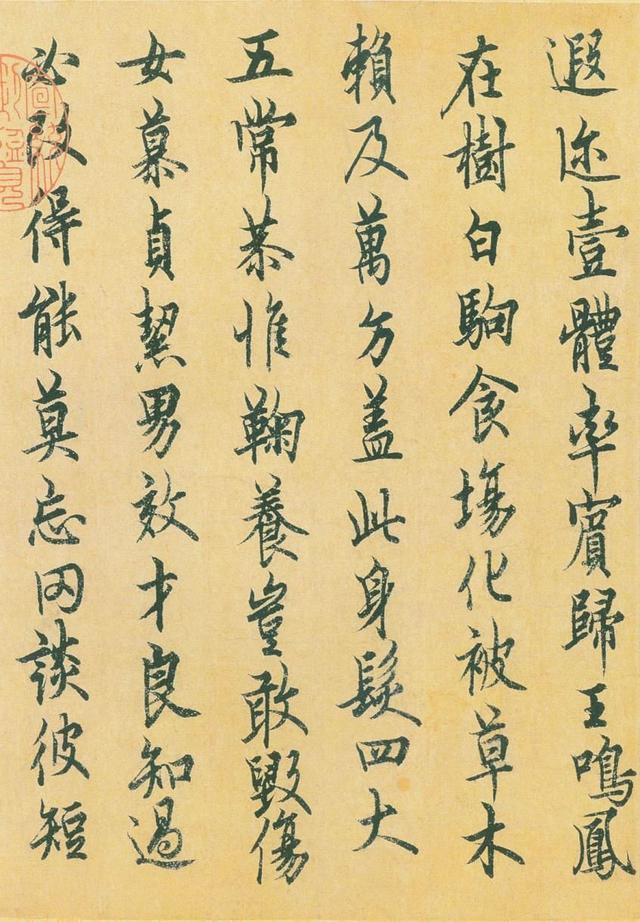 遐迩壹體率賓歸王鳴鳳
在樹白駒食塲化被草木
賴及萬方蓋此身髮四大
五常恭惟鞠養豈敢毀傷
女慕貞絜男效才良知過
必改得能莫忘罔談彼短